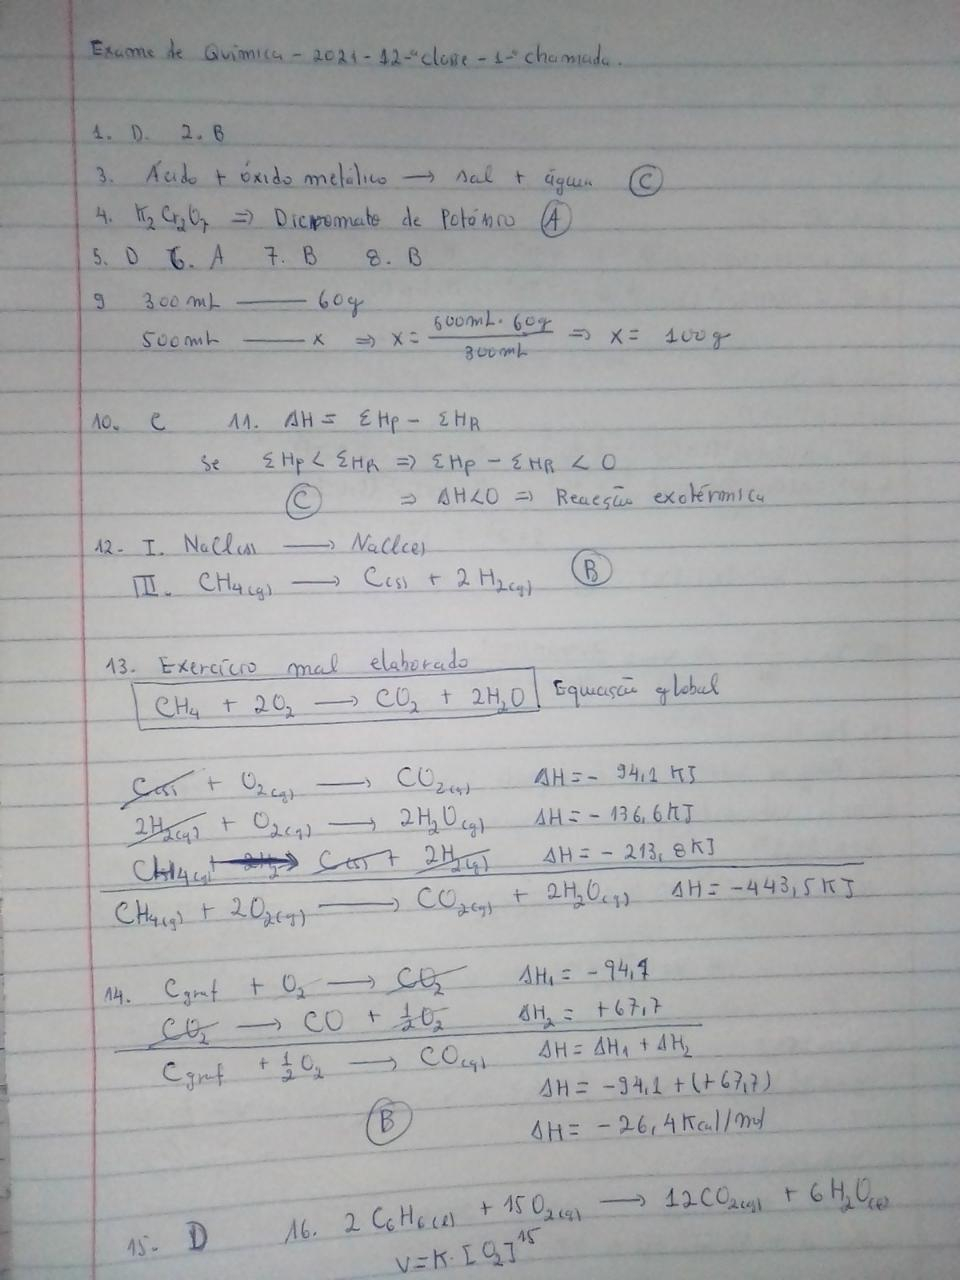 Exame de Química - 2021 - 12-ª classe - 1-ª chamada.
1. D. 2. B
3. Ácido + óxido metálico → sal + água C
4. K2Cr2O7 ⇒ Dicromato de Potássio A
5. D 6. A 7. B 8. B
9 300 mL —— 60g
500mL —— x ⇒ x = 500mL · 60g / 300mL ⇒ x = 100g
10. C 11. ΔH = ΣHp - ΣHR
Se ΣHp < ΣHR ⇒ ΣHp - ΣHR < 0
C ⇒ ΔH<0 ⇒ Reacção exotérmica
12. I. NaCl(s) → NaCl(l)
III. CH4(g) → C(s) + 2H2(g) B
13. Exercício mal elaborado
CH4 + 2O2 → CO2 + 2H2O Equação global
C(s) + O2(g) → CO2(g) ΔH = - 94,1 KJ
2H2(g) + O2(g) → 2H2O(g) ΔH = - 136,6 KJ
CH4(g) → C(s) + 2H2(g) ΔH = - 213,8 KJ
CH4(g) + 2O2(g) → CO2(g) + 2H2O(g) ΔH = -443,5 KJ
14. Cgraf + O2 → CO2 ΔH1 = -94,1
CO2 → CO + 1/2O2 ΔH2 = +67,7
Cgraf + 1/2O2 → CO(g) ΔH = ΔH1 + ΔH2
ΔH = -94,1 + (+67,7)
B ΔH = -26,4 Kcal/mol
15. D 16. 2 C6H6(l) + 15O2(g) → 12CO2(g) + 6H2O(l)
V=K·[O2]15